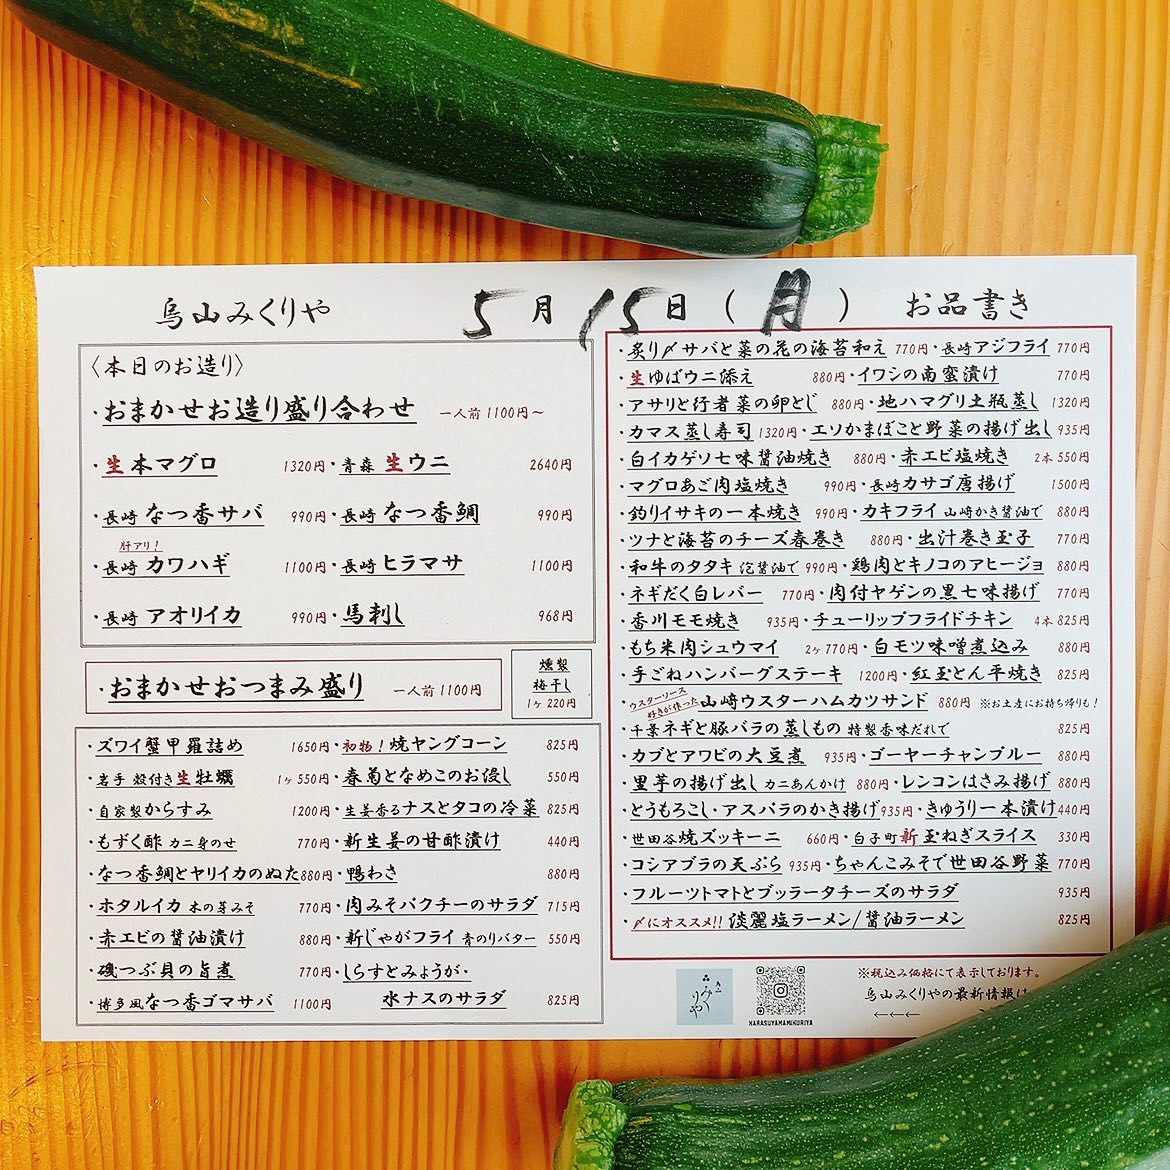 烏山みくりや 5月15日(月) お品書き
〈本日のお造り〉
・おまかせお造り盛り合わせ 一人前1100円〜
・生本マグロ 1320円・青森 生ウニ 2640円
・長崎 なつ香サバ 990円・長崎 なつ香鯛 990円
肝アリ!
・長崎 カワハギ 1100円・長崎 ヒラマサ 1100円
・長崎 アオリイカ 990円・馬刺し 968円
・おまかせおつまみ盛り 一人前1100円
燻製
梅干し
1ヶ220円
・ズワイ蟹甲羅詰め 1650円・初物!焼ヤングコーン 825円
・岩手 殻付き生牡蠣 1ヶ550円・春菊となめこのお浸し 550円
・自家製からすみ 1200円・生姜香るナスとタコの冷菜 825円
・もずく酢 カニ身のせ 770円・新生姜の甘酢漬け 440円
・なつ香鯛とヤリイカのぬた880円・鴨わさ 880円
・ホタルイカ 木の芽みそ 770円・肉みそパクチーのサラダ 715円
・赤エビの醤油漬け 880円・新じゃがフライ 青のりバター 550円
・磯つぶ貝の旨煮 770円・しらすとみょうが・
・博多風なつ香ゴマサバ 1100円 水ナスのサラダ 825円
・炙り〆サバと菜の花の海苔和え 770円・長崎アジフライ 770円
・生ゆばウニ添え 880円・イワシの南蛮漬け 770円
・アサリと行者菜の卵とじ 880円・地ハマグリ土瓶蒸し 1320円
・カマス蒸し寿司 1320円・エソかまぼこと野菜の揚げ出し 935円
・白イカゲソ七味醤油焼き 880円・赤エビ塩焼き 2本550円
・マグロあご肉塩焼き 990円・長崎カサゴ唐揚げ 1500円
・釣りイサキの一本焼き 990円・カキフライ 山崎かき醤油で 880円
・ツナと海苔のチーズ春巻き 880円・出汁巻き玉子 770円
・和牛のタタキ 泡醤油で 990円・鶏肉とキノコのアヒージョ 880円
・ネギだく白レバー 770円・肉付ヤゲンの黒七味揚げ 770円
・香川モモ焼き 935円・チューリップフライドチキン 4本825円
・もち米肉シュウマイ 2ヶ770円・白モツ味噌煮込み 880円
・手ごねハンバーグステーキ 1200円・紅玉とん平焼き 825円
ウスターソース
好きが作った
・山崎ウスターハムカツサンド 880円 ※お土産にお持ち帰りも!
・千葉ネギと豚バラの蒸しもの 特製香味だれで 825円
・カブとアワビの大豆煮 935円・ゴーヤーチャンプルー 880円
・里芋の揚げ出し カニあんかけ 880円・レンコンはさみ揚げ 880円
・とうもろこし・アスパラのかき揚げ935円・きゅうり一本漬け440円
・世田谷焼ズッキーニ 660円・白子町新玉ねぎスライス 330円
・コシアブラの天ぷら 935円・ちゃんこみそで世田谷野菜 770円
・フルーツトマトとブッラータチーズのサラダ 935円
・〆にオススメ!! 淡麗塩ラーメン/醤油ラーメン 825円
みくりや
KARASUYAMAMIKURIYA
※税込み価格にて表示しております。
烏山みくりやの最新情報は
←←←